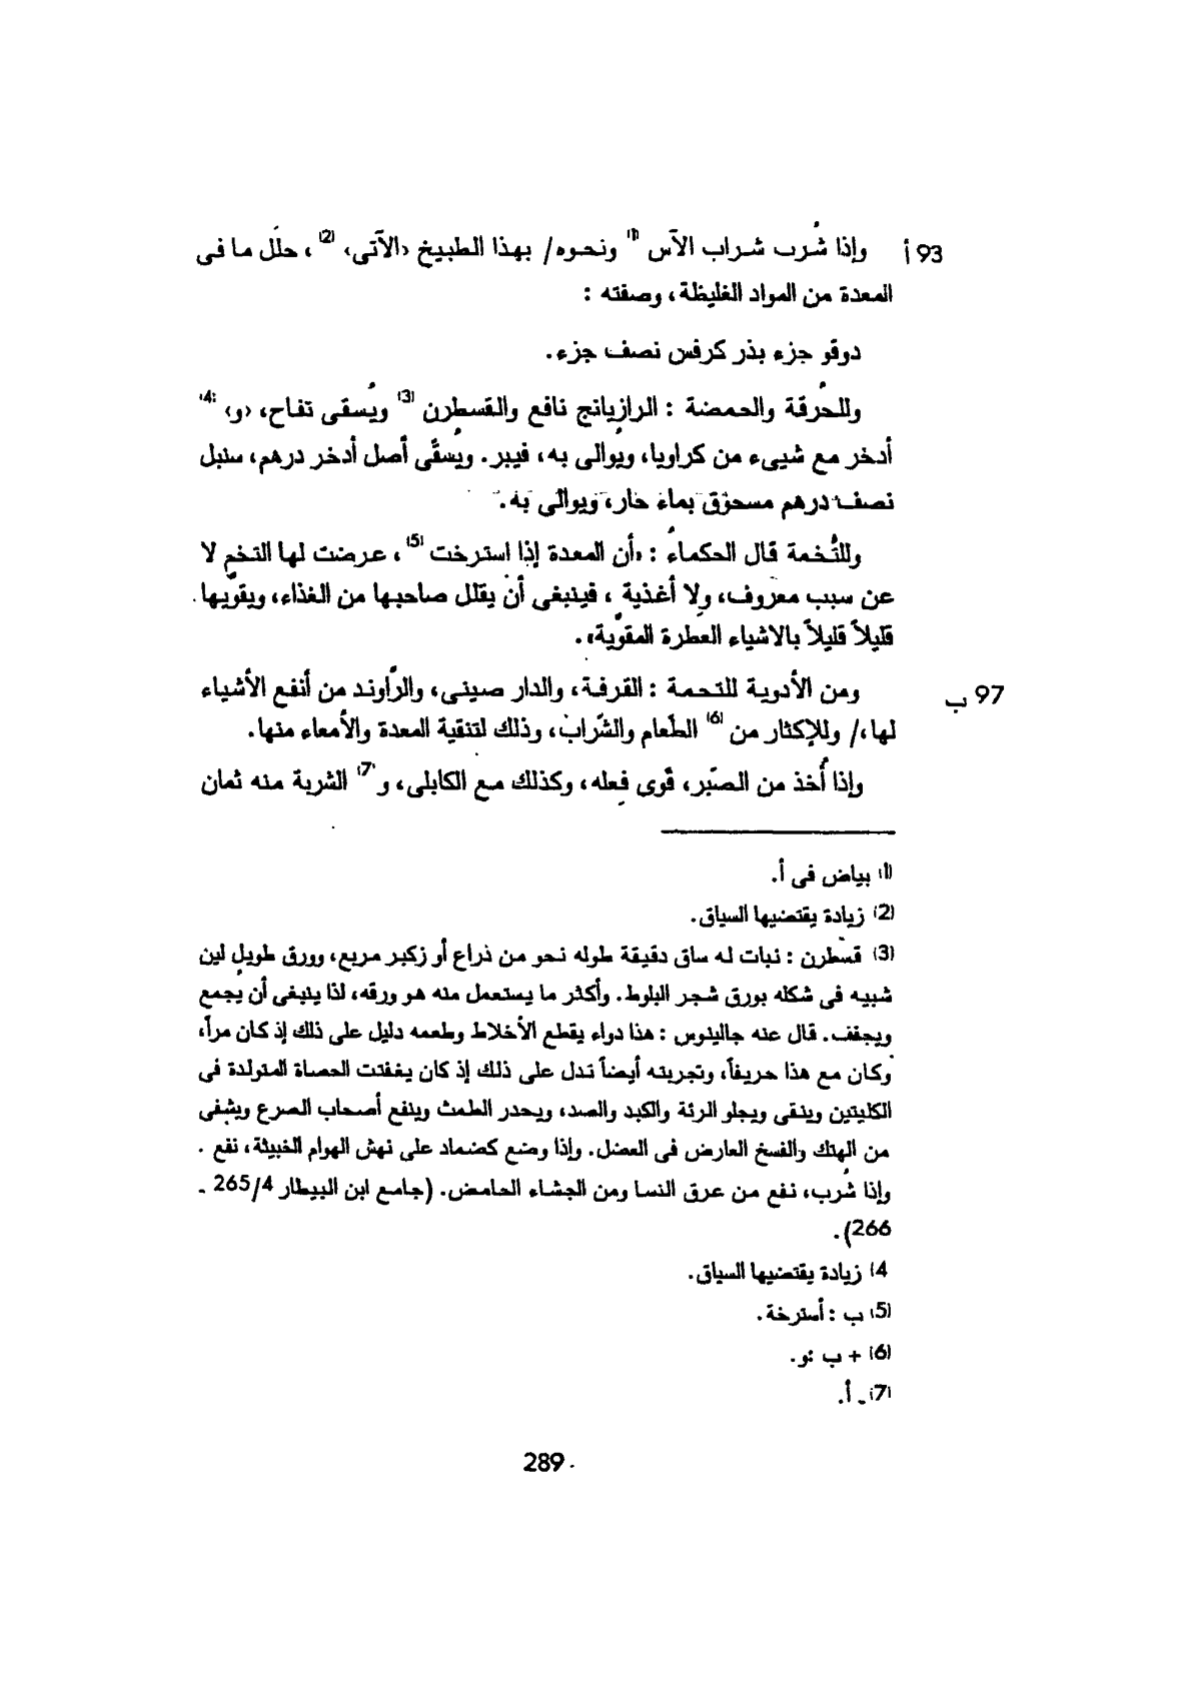 93 أ وإذا شُرب شراب الآس (1) ونحوه/ بهذا الطبيخ ‹الآتى› (2)، حلّل ما فى
المعدة من المواد الغليظة، وصفته :
دوقو جزء بذر كرفس نصف جزء.
وللحُرقة والحمضة : الرازيانج نافع والقسطرن (3) ويُسقى تفاح، ‹و› (4)
أدخر مع شيىء من كراويا، ويُوالى به، فيبر. ويُسقَّى أصل أدخر درهم، سنبل
نصف درهم مسحوق بماء حار، ويوالى به.
وللتُّخمة قال الحكماءُ : «أن المعدة إذا استرخت (5)، عرضت لها التخم لا
عن سبب معروف، ولا أغذية ، فينبغى أن يقلل صاحبها من الغذاء، ويقوّيها
قليلاً قليلاً بالاشياء العطرة المقوّية».
97 ب ومن الأدوية للتحمة : القرفة، والدار صينى، والرّاوند من أنفع الأشياء
لها،/ وللإكثار من (6) الطّعام والشّراب، وذلك لتنقية المعدة والأمعاء منها.
وإذا أُخذ من الصّبر، قوى فعله، وكذلك مع الكابلى، و (7) الشربة منه ثمان
(1) بياض فى أ.
(2) زيادة يقتضيها السياق.
(3) قسطرن : نبات له ساق دقيقة طوله نحو من ذراع أو زكبر مربع، وورق طويل لين
شبيه فى شكله بورق شجر البلوط. وأكثر ما يستعمل منه هو ورقه، لذا ينبغى أن يُجمع
ويجفف. قال عنه جالينوس : هذا دواء يقطع الأخلاط وطعمه دليل على ذلك إذ كان مراً،
وكان مع هذا حريفاً، وتجربته أيضاً تدل على ذلك إذ كان يفتت الحصاة المتولدة فى
الكليتين وينقى ويجلو الرئة والكبد والصد، ويحدر الطمث وينفع أصحاب الصرع ويشفى
من الهتك والفسخ العارض فى العضل. وإذا وضع كضماد على نهش الهوام الخبيثة، نفع .
وإذا شُرب، نفع من عرق النسا ومن الجشاء الحامض. (جامع ابن البيطار 265/4 ـ
266).
(4 زيادة يقتضيها السياق.
(5) ب : أسترخة.
(6) + ب :و.
(7) ـ أ.
289